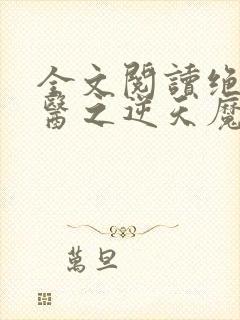 全文閱讀绝
醫之逆天魔
萬旦